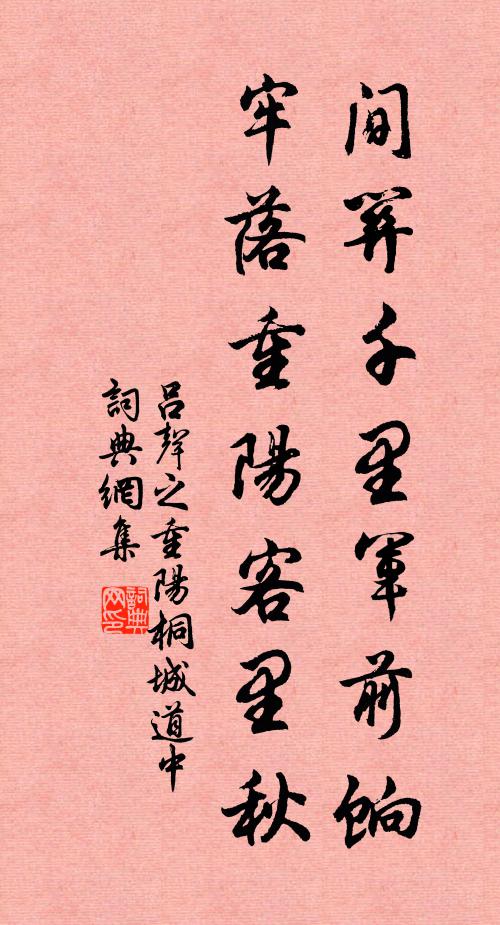 間關千里軍前餉
牢落重陽客里秋
呂聲之重陽桐城道中
詞典網集
詞典網印